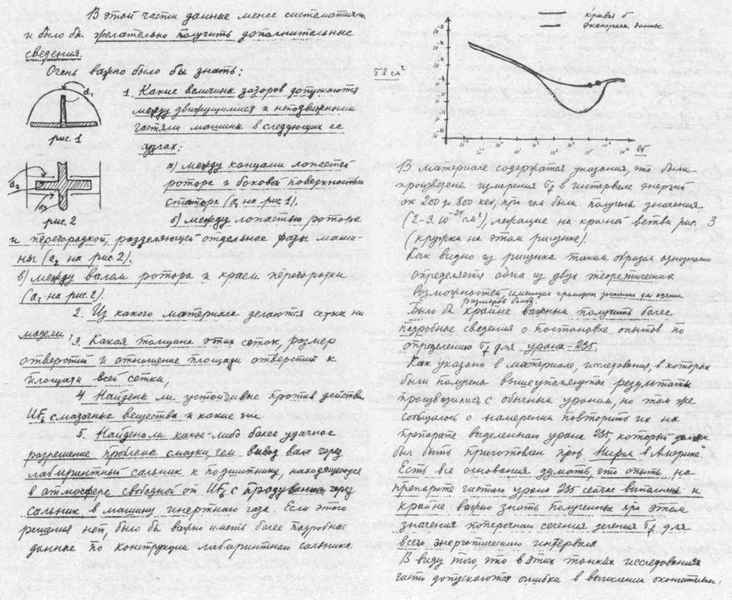 В этой части данные менее систематичн
и было бы желательно получить дополнительные
сведения.
Очень важно было бы знать:
1. Какие величины зазоров допускаются
между движущимися и неподвижными
частями машины в следующих ее
узлах:
а) между концами лопастей
ротора и боковой поверхностью
статора (a₁ на рис 1),
рис. 1
б) между лопастью ротора
рис. 2
и перегородкой, разделяющей отдельные фазы маши-
ны (a₂ на рис 2).
в) между валом ротора и краем перегородки
(a₃ на рис. 2).
2. Из какого материала делаются сетки на
модели
3. Какая толщина этих сеток, размер
отверстий и отношение площади отверстий к
площади всей сетки,
4 Найдены ли устойчивые против действия
UF₆ смазочные вещества и какие
5. Найдено ли какое-либо более удачное
разрешение проблемы смазки чем вывод вала через
лабиринтный сальник к подшипнику, находящемуся
в атмосфере свободной от UF₆ с продуванием через
сальник в машину инертного газа. Если этого
решения нет, было бы важно иметь более подробные
данные по конструкции лабиринтного сальника
кривая
В материале содержатся указания, что были
произведены измерения σf в интервале энергий
от 200 до 800 кев, при чем были получены значения
(2-3 10⁻²⁴ см²), лежащие на кривой ветви рис. 3
(кружки на этом рисунке).
Как видно из рисунка таким образом однозначно
определяется одна из двух теоретических
возможностей,
Было бы крайне важным получить более
подробные сведения о постановке опытов по
определению σf для урана-235.
Как указано в материале, исследования, в которых
были получены вышеупомянутые результаты
производились с обычным ураном, но там же
сообщалось о намерении повторить их на
препарате выделенного урана 235, который должен
был быть приготовлен проф.
Есть все основания думать, что опыты на
препарате чистого урана 235 сейчас выполнены и
крайне важно знать полученные при этом
значения поперечного сечения деления σf для
всего энергетического интервала
В виду того, что в этих тонких исследованиях
часто допускаются ошибки в